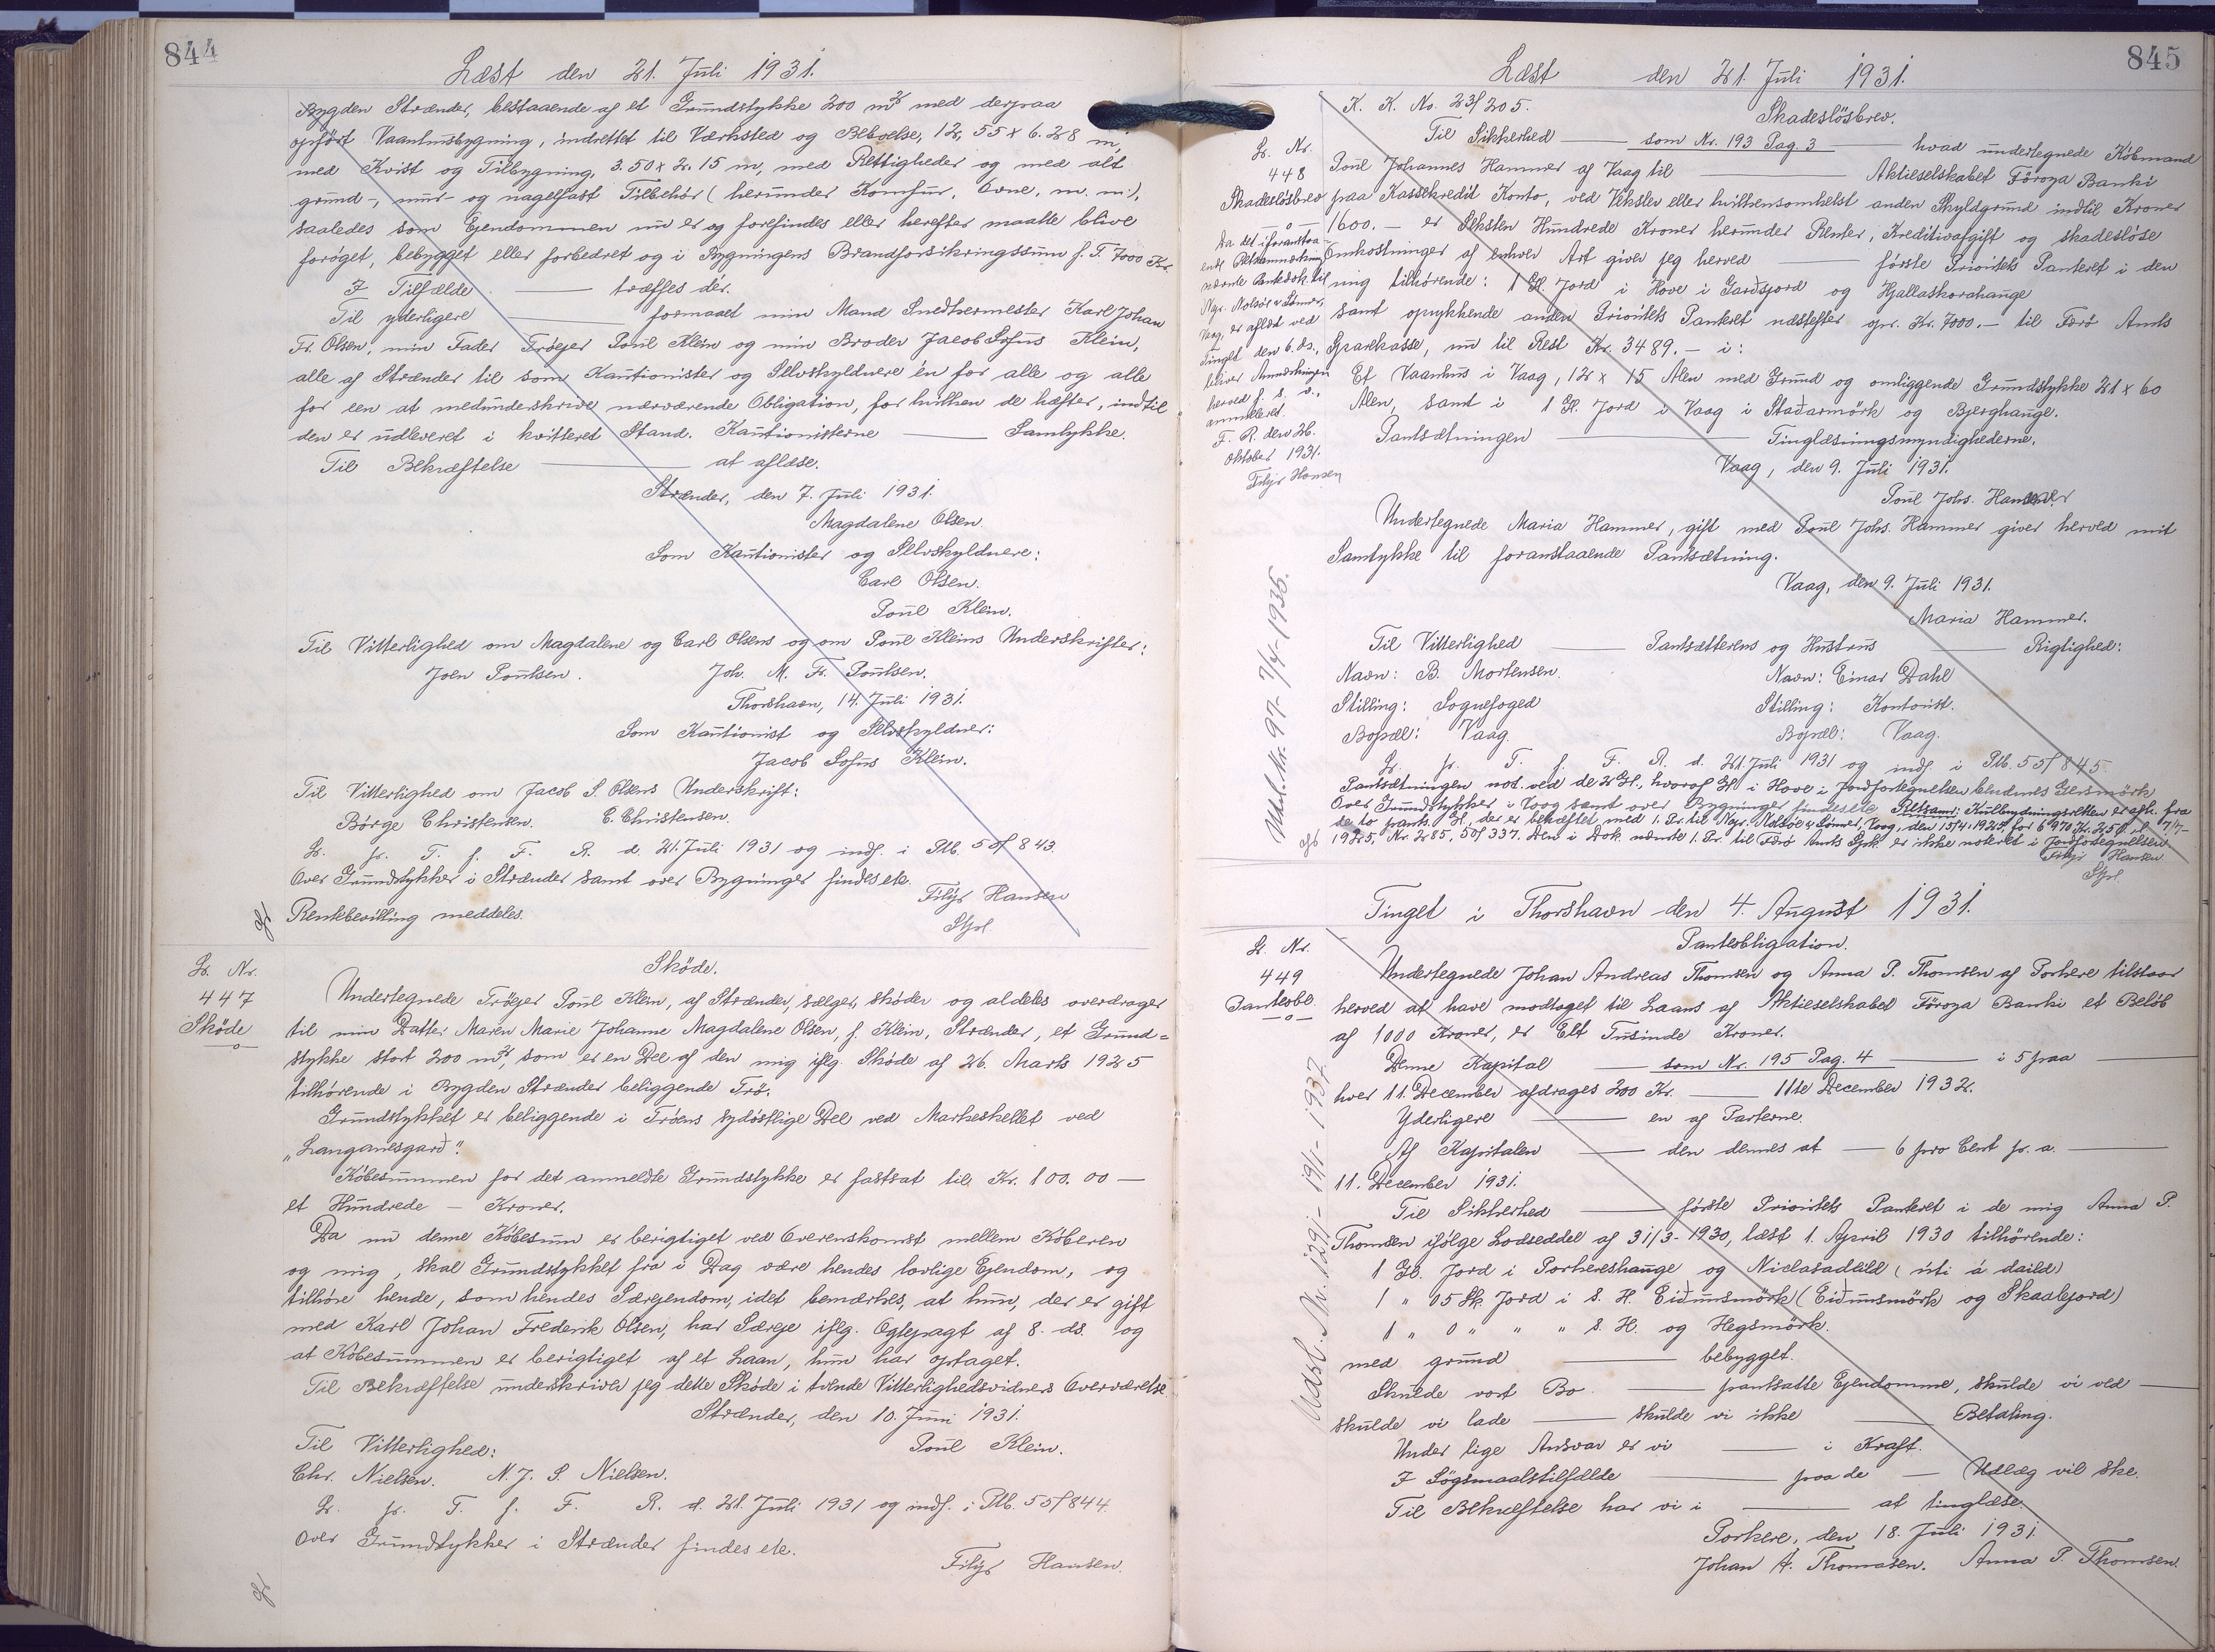 844
Læst den 21. Juli 1931.
Bygden Strænder, bestaaende af et Grundstykke 200 m² med derpaa
opført Vaaningsbygning, indrettet til Værksted og Beboelse, 12,55 x 6.28 m,
med Kvist og Tilbygning, 3.50 x 2.15 m, med Rettigheder og med alt
grund-, mur- og nagelfast Tilbehör (herunder Komfur, Ovne, m. m.),
saaledes som Ejendommen nu er og forefindes eller herefter maatte blive
foröget, bebygget eller forbedret og i Bygningens Brandforsikringssum f. T. 7000 Kr.
I Tilfælde — træffes dér.
Til yderligere — formaaet min Mand Snedkermester Karl Johan
Fr. Olsen, min Fader Tröejer Poul Klein og min Broder Jacob Sofus Klein,
alle af Strænder til som Kautionister og Selvskyldnere én for alle og alle
for een at medunderskrive nærværende Obligation, for hvilken de hæfter, indtil
den er udleveret i kvitteret Stand. Kautionisterne — Samtykke.
Til Bekræftelse — at aflæse.
Strænder, den 7. Juli 1931.
Magdalene Olsen.
Som Kautionister og Selvskyldnere:
Carl Olsen.
Poul Klein.
Til Vitterlighed om Magdalene og Carl Olsens og om Poul Kleins Underskrifter:
Joen Poulsen. Joh. M. Fr. Poulsen.
Thorshavn, 14. Juli 1931.
Som Kautionist og Selvskyldner:
Jacob Sofus Klein.
Til Vitterlighed om Jacob S. Olsens Underskrift:
Börge Christensen. C. Christensen.
L. p. T. f. F. R. d. 21. Juli 1931 og indf. i Ptb. 55f 843.
Over Grundstykker i Strænder samt over Bygninger findes etc.
Rentebevilling meddeles.
Filip Hansen
Stfr.
L. Nr.
447
Sköde
Sköde.
Undertegnede Tröejer Poul Klein, af Strænder, sælger, sköder og aldeles overdrager
til min Datter Maren Marie Johanne Magdalene Olsen, f. Klein, Strænder, et Grund=
stykke stort 200 m², som er en Del af den mig iflg. Sköde af 26. Marts 1925
tilhörende i Bygden Strænder beliggende Trö.
Grundstykket er beliggende i Tröens sydöstlige Del ved Markeskellet ved
„Langanesgard“.
Köbesummen for det anmeldte Grundstykke er fastsat til Kr. 100.00 —
et Hundrede — Kroner.
Da nu denne Köbesum er berigtiget ved Overenskomst mellem Köberen
og mig, skal Grundstykket fra i Dag være hendes lovlige Ejendom, og
tilhöre hende, som hendes Særejendom, idet bemærkes, at hun, der er gift
med Karl Johan Frederik Olsen, har Særeje iflg. Ægtepagt af 8. ds. og
at Köbesummen er berigtiget af et Laan, hun har optaget.
Til Bekræftelse underskriver jeg dette Sköde i tvende Vitterlighedsvidners Overværelse
Strænder, den 10. Juni 1931.
Poul Klein.
Til Vitterlighed:
Chr. Nielsen. N. J. P. Nielsen.
L. p. T. f. F. R. d. 21. Juli 1931 og indf. i Ptb. 55f 844
Over Grundstykker i Strænder findes etc.
Filip Hansen.
845
Læst den 21. Juli 1931.
K. K. No. 23f 205.
Skadeslösbrev.
L. Nr.
448
Skadeslösbrev
Da det i foranstaa-
ende
nævnte Pantedok. til
Ngr. Nolsøe & Sønner,
Vaag, er aflæst ved
Tinget den 6. ds.,
bliver Anmærkningen
herved f. s. v.,
annulleret.
F. R. den 26.
Oktober 1931.
Filip Hansen
Til Sikkerhed — som Nr. 193 Pag. 3 — hvad undertegnede Köbmand
Poul Johannes Hammer af Vaag til — Aktieselskabet Föroya Banki
paa Kassekredit Konto, ved Veksler eller hvilkensomhelst anden Skyldgrund indtil Kroner
1600.— er Seksten Hundrede Kroner herunder Renter, Kreditivafgift og skadeslöse
Omkostninger af enhver Art giver jeg herved — förste Prioritets Panteret i den
mig tilhörende: 1 Gl. Jord i Hove i Gardsjord og Hjallaskorahauge
samt oprykkende anden Prioritets Panteret næstefter opr. Kr. 7000.— til Færö Amts
Sparekasse, nu til Rest Kr. 3489.— i:
Et Vaanhus i Vaag, 12 x 15 Alen med Grund og omliggende Grundstykke 21 x 60
Alen, samt i 1 Gl. Jord i Vaag i Stadarmörk og Bjerghauge.
Pantsætningen — Tinglæsningsmyndighederne.
Vaag, den 9. Juli 1931.
Poul Johs. Hammer
Undertegnede Maria Hammer, gift med Poul Johs. Hammer giver herved mit
Samtykke til foranstaaende Pantsætning.
Vaag, den 9. Juli 1931.
Maria Hammer.
Til Vitterlighed — Pantsætterens og Hustrus — Rigtighed:
Navn: B. Mortensen. Navn: Einar Dahl
Stilling: Sognefoged Stilling: Kontorist.
Bopæl: Vaag. Bopæl: Vaag.
L. p. T. f. F. R. d. 21. Juli 1931 og indf. i Ptb. 55f 845.
Pantsætningen not. ved de 2 Gl., hvoraf Gl. i Hove i Jordfortegnelsen benævnes Gersmörk
Over Grundstykker i Vaag samt over Bygninger findes etc. Retsanm:
de to pants. Gl., der er behæftet med 1. Pr. til Ngr. Nolsøe & Sønner, Vaag, den 15/4 1925, for 6970 Kr. 25 ø,
1925, Nr. 285, 50f 337. Den i Dok. nævnte 1. Pr. til Færö Amts Spk. er ikke noteret i Jordfortegnelsen.
Filip Hansen
Stfr.
Udsl. Nr. 97- 7/4-1936.
Tinget i Thorshavn den 4. August 1931.
L. Nr.
449
Panteobl.
Panteobligation.
Undertegnede Johan Andreas Thomsen og Anna P. Thomsen af Porkere tilstaar
herved at have modtaget til Laans af Aktieselskabet Föroya Banki et Belöb
af 1000 Kroner, er Ett Tusinde Kroner.
Denne Kapital — som Nr. 195 Pag. 4 — i 5 paa —
hver 11. December afdrages 200 Kr. — 11te December 1932.
Yderligere — en af Parterne.
Af Kapitalen — den dennes at — 6 pro Cent p. a. —
11. December 1931.
Til Sikkerhed — förste Prioritets Panteret i de mig Anna P.
Thomsen ifölge Lodseddel af 31/3-1930, læst 1. April 1930 tilhörende:
1 Gl. Jord i Porkereshauge og Niclasadeild (úti á daild)
1 " 05 Sk. Jord i S. H. Eidunsmörk (Eidunsmörk og Skaalejord)
1 " 0 " " " S. H. og Hegsmörk.
med grund — bebygget.
Skulde vort Bo — pantsatte Ejendomme, skulde vi ved —
skulde vi lade — skulde vi ikke — Betaling.
Under lige Ansvar er vi — i Kraft.
I Sögsmaalstilfælde — paa de — Udlæg vil ske.
Til Bekræftelse har vi i — at tinglæse.
Porkere, den 18. Juli 1931.
Johan A. Thomasen. Anna P. Thomsen.
Udsl. Nr. 1291- 19/1-1937